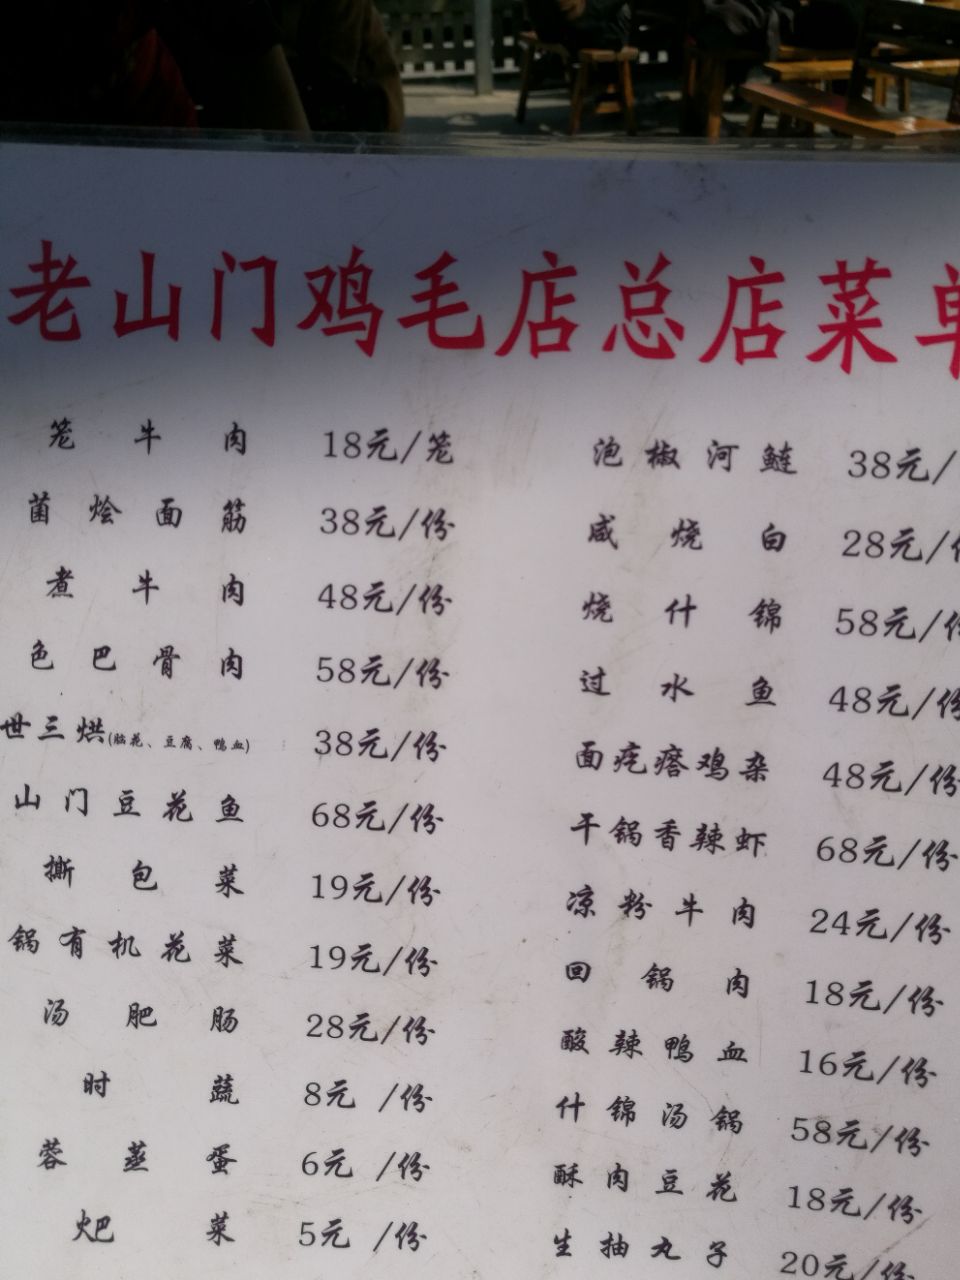 老山门鸡毛店总店菜单
笼牛肉 18元/笼
菌烩面筋 38元/份
煮牛肉 48元/份
色巴骨肉 58元/份
世三烘(脑花、豆腐、鸭血) 38元/份
山门豆花鱼 68元/份
撕包菜 19元/份
锅有机花菜 19元/份
汤肥肠 28元/份
时蔬 8元/份
蓉蒸蛋 6元/份
火巴菜 5元/份
泡椒河鲢 38元/
咸烧白 28元/份
烧什锦 58元/份
过水鱼 48元/份
面疙瘩鸡杂 48元/份
干锅香辣虾 68元/份
凉粉牛肉 24元/份
回锅肉 18元/份
酸辣鸭血 16元/份
什锦汤锅 58元/份
酥肉豆花 18元/份
生抽丸子 20元/份